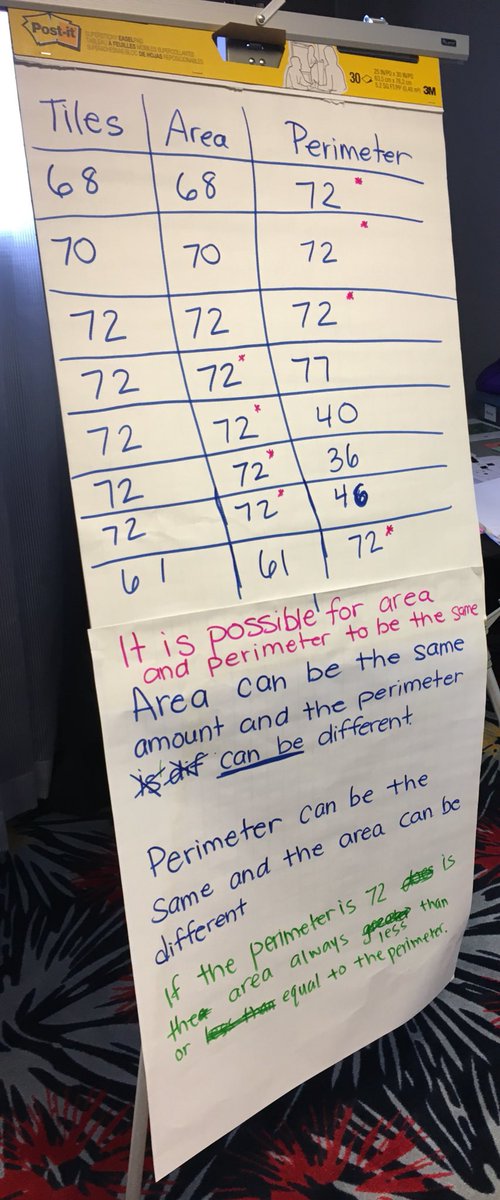 Post-it
SUPERSTICKY EASEL PAD
30
25 IN/PO x 30 IN/PO
63.5 cm x 76.2 cm
3M
Tiles Area Perimeter
68 68 72 *
70 70 72 *
72 72 72 *
72 72 * 77
72 72 * 40
72 72 * 36
72 72 * 46
61 61 72 *
It is possible for area
and perimeter to be the same
Area can be the same
amount and the perimeter
is dif can be different
Perimeter can be the
same and the area can be
different
If the perimeter is 72 does is
the area always greater less than
or less than equal to the perimeter.